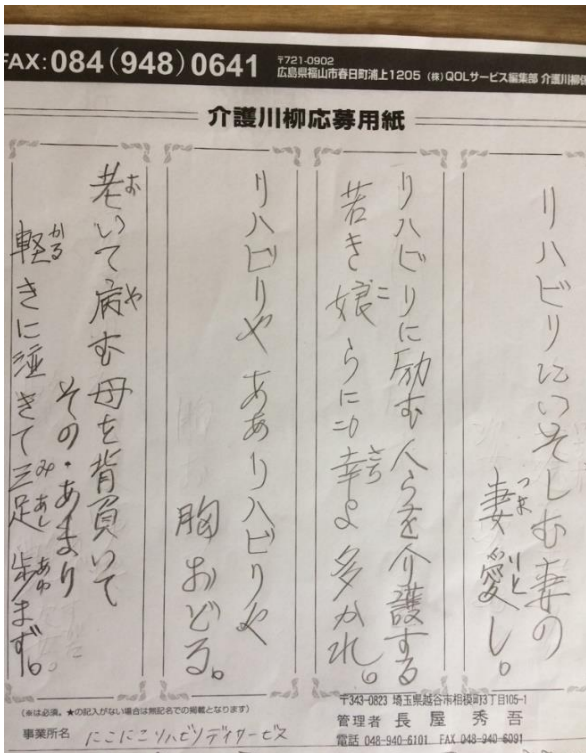 FAX:084(948)0641
〒721-0902
広島県福山市春日町浦上1205 (株)QOLサービス編集部 介護川柳係
介護川柳応募用紙
リハビリにいそしむ妻の
妻愛し。
つま
いと
リハビリに励む人らを介護する
若き娘らに幸よ多かれ。
こ
さち
リハビリやああリハビリや
胸おどる。
老いて病む母を背負いて
お
や
その・あまり
軽きに泣きて三足歩まず。
かる
みあし
あゆ
(※は必須。★の記入がない場合は無記名での掲載となります)
事業所名 にこにこリハビリデイサービス
〒343-0823 埼玉県越谷市相模町3丁目105-1
管理者 長屋 秀吾
電話 048-940-6101 FAX 048-940-6091